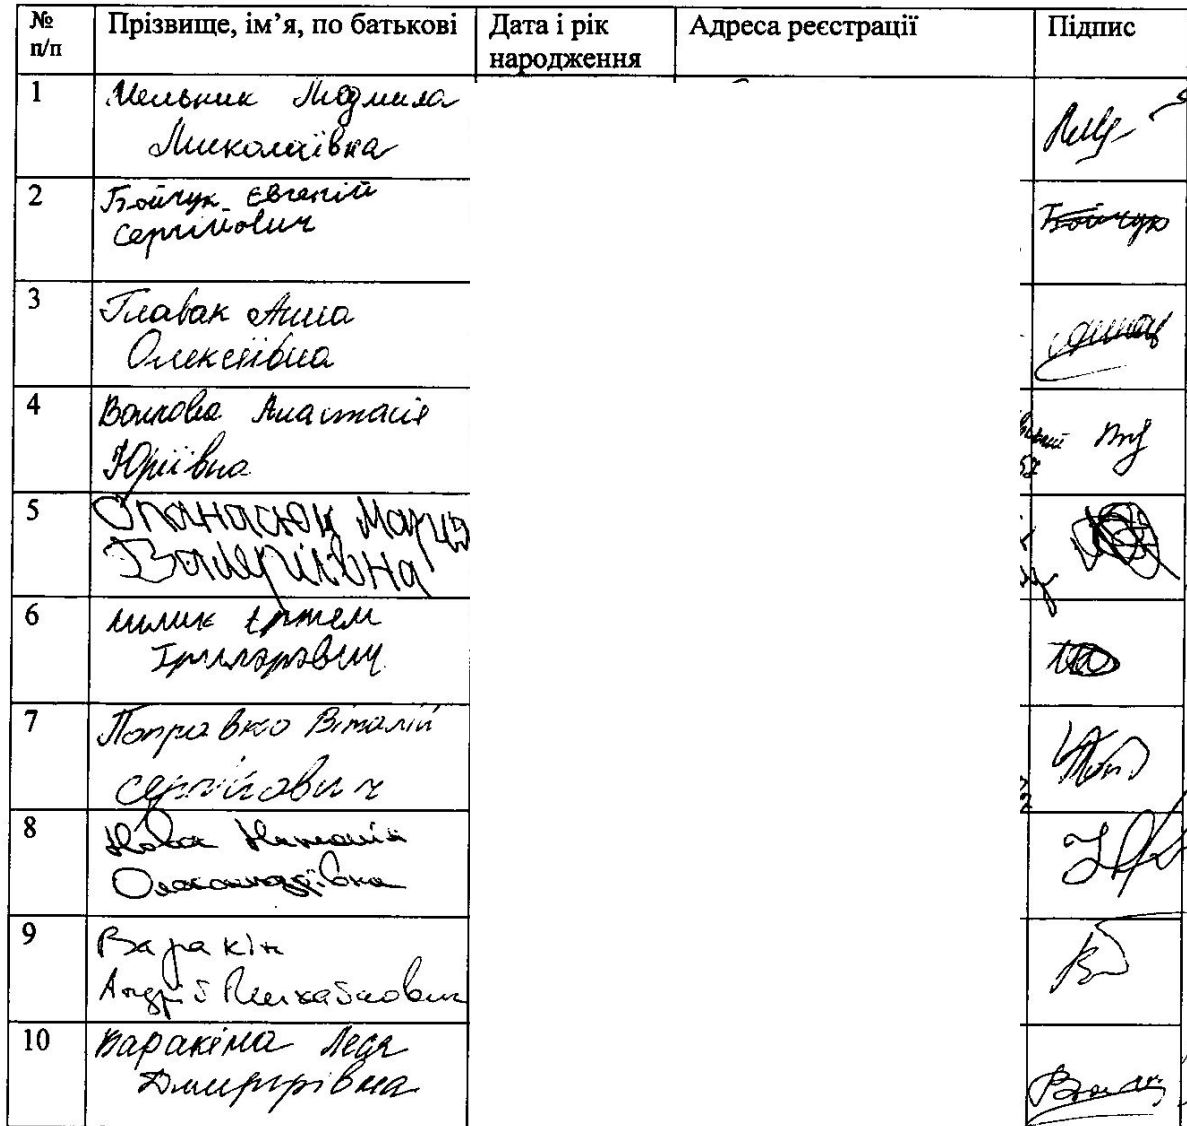 № Прізвище, ім’я, по батькові Дата і рік Адреса реєстрації Підпис
п/п народження
1 Мельник Людмила
Миколаївна
2 Бойчук Євгеній Бойчук
Сергійович
3 Главак Анна
Олексіївна
4 Волкова Анастасія
Юріївна
5 Опанасюк Марія
Валеріївна
6 Артем
7 Поправко Віталій
Сергійович
8 Нова Наталія
Олександрівна
9 Варакін
Андрій Михайлович
10 Варакіна Леся
Дмитрівна